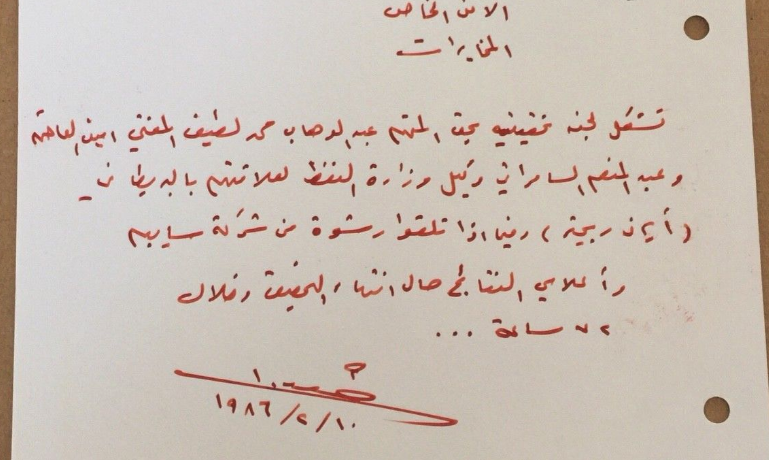 الامن الخاص
المخابرات
تشكل لجنه تحقيقيه بحق المتهم عبد الوهاب محمد لطيف المفتي امين العاصمه
وعبد المنعم السامرائي وكيل وزارة النفط لعلاقتهم بالبريطاني
(أيان ريجتر) وفيما اذا تلقوا رشوة من شركة سايبم
وأعلامي النتائج حال انتهاء التحقيق وخلال
٧٢ ساعة ...
١٩٨٦/٢/١٠